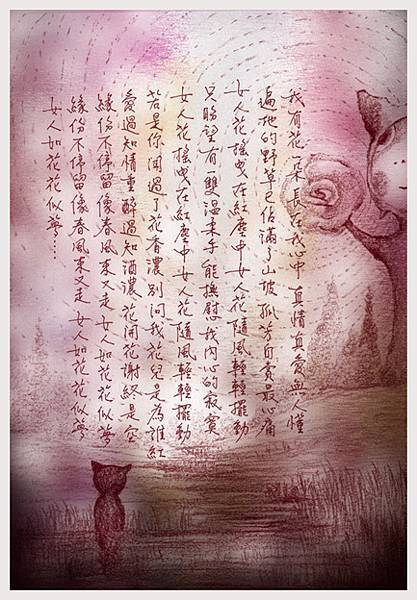 我有花一朵 長在我心中 真情真愛無人懂
遍地的野草已佔滿了山坡 孤芳自賞最心痛
女人花搖曳在紅塵中 女人花隨風輕輕擺動
只盼望有一雙溫柔手 能撫慰我內心的寂寞
女人花搖曳在紅塵中 女人花隨風輕輕擺動
若是你聞過了花香濃 別問我花兒是為誰紅
愛過知情重 醉過知酒濃 花開花謝終是空
緣份不停留 像春風來又走 女人如花花似夢
緣份不停留 像春風來又走 女人如花花似夢
女人如花花似夢……